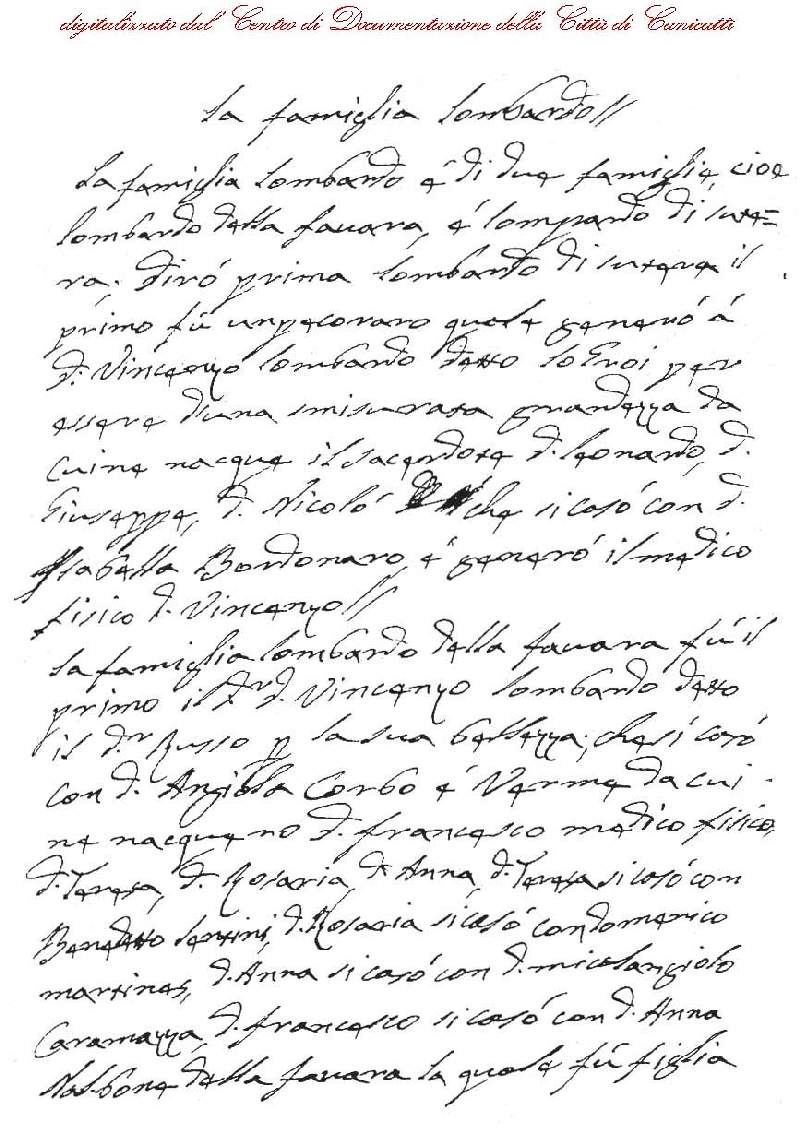 digitalizzato dal Centro di Documentazione della Città di Canicattì
La famiglia Lombardo//
La famiglia Lombardo é di due famiglie cioe
Lombardo della favara, é Lompardo di Sute=
ra. Diró prima Lombardo di Sutera il
primo fú un pecoraro quale generó á
d. Vincenzo Lombardo detto lo Eroi per
essere d'una smisurata grandezza da
cui ne nacque il Sacerdote d. Leonardo, d.
Giuseppe, d. Nicoló che si casó con d.
Isabella Bordonaro, é generó il medico
fisico d. Vincenzo//
La famiglia Lombardo della favara fú il
primo il Dr. d. Vincenzo Lombardo detto
il dr. Russo p la sua bellezza, che si casó
con d. Angiola Corbo é Verme da cui
ne nacquero d. francesco medico fisico,
d. Teresa, d. Rosaria, d. Anna, d. Teresa si casó con
Benedetto Sentini, d. Rosaria si casó con domenico
martines, d. Anna si casó con d. micolangiolo
Caramazza, d. francesco si casó con d. Anna
della favara la quale fú figlia